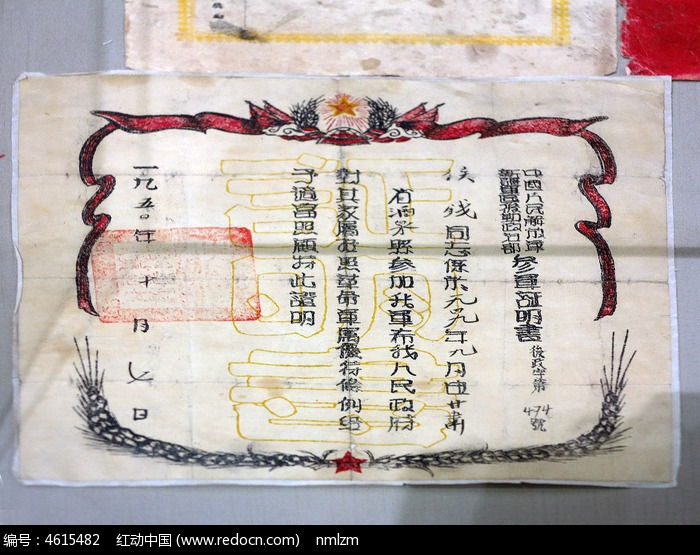 中國人民解放軍
新疆軍區後勤政治部
參軍証明書
後政字第
474
號
侯戈同志係於一九四九年九月由甘肅
省酒泉縣參加我軍希我人民政府
對其家屬按照革命軍屬優待條例給
予適當照顧特此證明
一九五〇年十月七日
証明書
编号:4615482 红动中国 (www.redocn.com) nmlzm